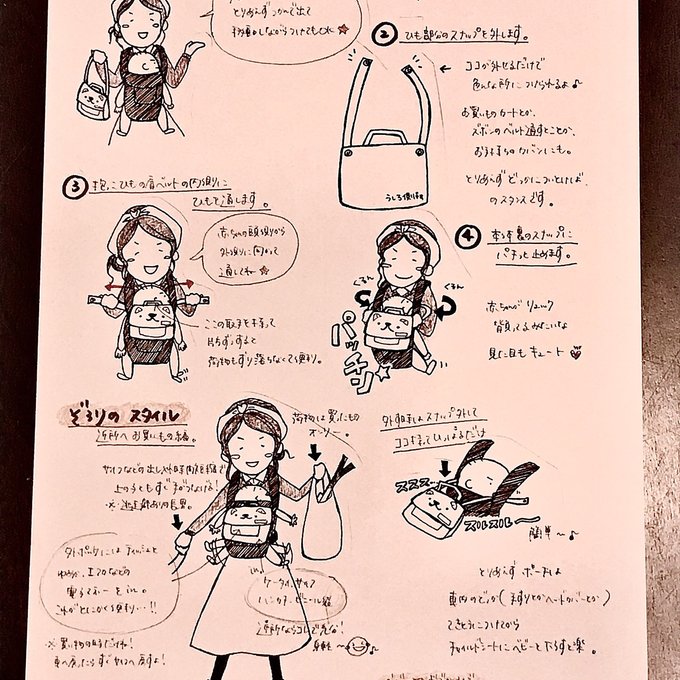 とりあえずつかんで出て
移動しながらつけてもOK★
② ひも部分のスナップを外します。
← ココが外せるだけで
色んな所につけられるよ♪
お買いものカートとか、
ズボンのベルト通すとことか、
お子さまのカバンにも。
とりあえずどっかについとけば、
のスタンスです。
うしろ側
③ 抱っこひもの肩ベルトの内側に
ひもを通します。
赤ちゃんの頭側から
外側に向かって
通してね★
ここの取手を持って
荷物もずり落ちなくて便利。
④ 本体裏のスナップに
パチッと止めます。
ぐるん
ぐるん
パッチン☆
赤ちゃんがリュック
背負ってるみたいな
見た目もキュート
ぞうりのスタイル
近所へお買いもの編。
荷物は買ったもの
オンリー。
サイフなどの出し入れ時
上の子ともすぐ手がつなげる!
外ポケットにはティッシュと
などの
これがとにかく便利…!!
ケータイ、サイフ
ハンカチ、ビニール袋
近所ならコレで充分!
身軽〜♪
※買い物の時だけね!
車へ戻ったらすぐサイフへ戻すよ!
外す時はスナップ外して
ココ持ってひっぱるだけ
ススス〜
スルスル〜
簡単〜♪
とりあえずポーズは
車内のどっか(手すりとかヘッドカバーとか)
てきとうにつけてから
チャイルドシートにベビーをおろすと楽。